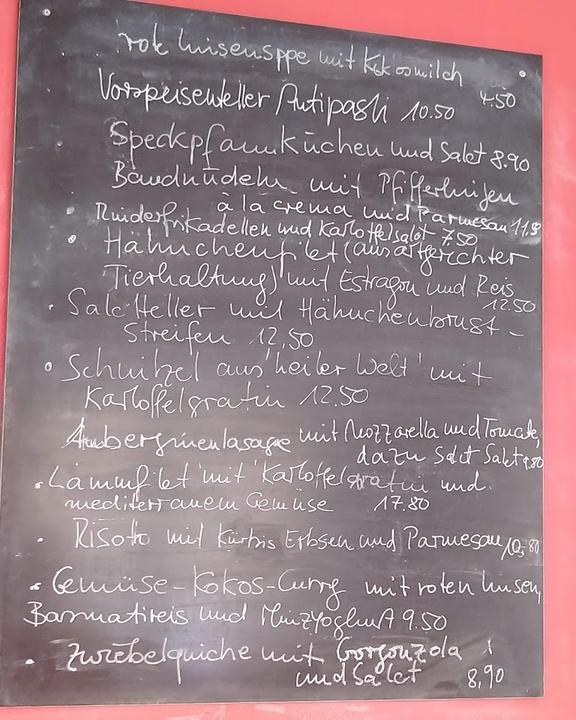 rote Linsensppe mit Kokosmilch
4.50
Vorspeisenteller Antipasti 10.50
Speckpfannkuchen und Salat 8.90
Bandnudeln mit Pfifferlingen
a la crema und Parmesan 11,8
Rinderfrikadellen und Kartoffelsalat 7.50
Hähnchenfilet (aus artgerichter
Tierhaltung) mit Estragon und Reis
12.50
Salatteller mit Hähnchenbrust-
Streifen 12,50
Schnitzel aus 'heiler Welt' mit
Kartoffelgratin 12.50
Auberginenlasagne mit Mozzarella und Tomate,
dazu Salat 9.80
Lammfilet mit Kartoffelgratin und
mediterranem Gemüse 17.80
Risotto mit Kürbis Erbsen und Parmesan 10,80
Gemüse-Kokos-Curry mit roten Linsen,
Basmatireis und Minzyoghurt 9.50
Zwiebelquiche mit Gorgonzola
und Salat 8,90